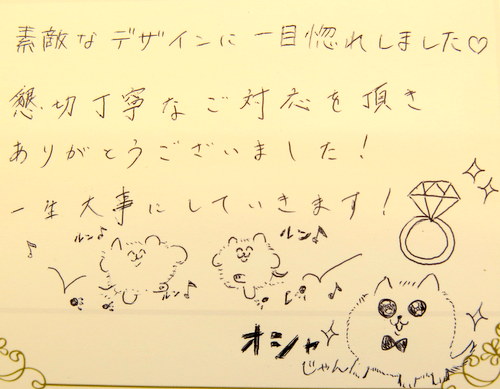 素敵なデザインに一目惚れしました♡
懇切丁寧なご対応を頂き
ありがとうございました!
一生大事にしていきます!
ルン♪
ルン♪
ルン♪
オシャ
じゃん